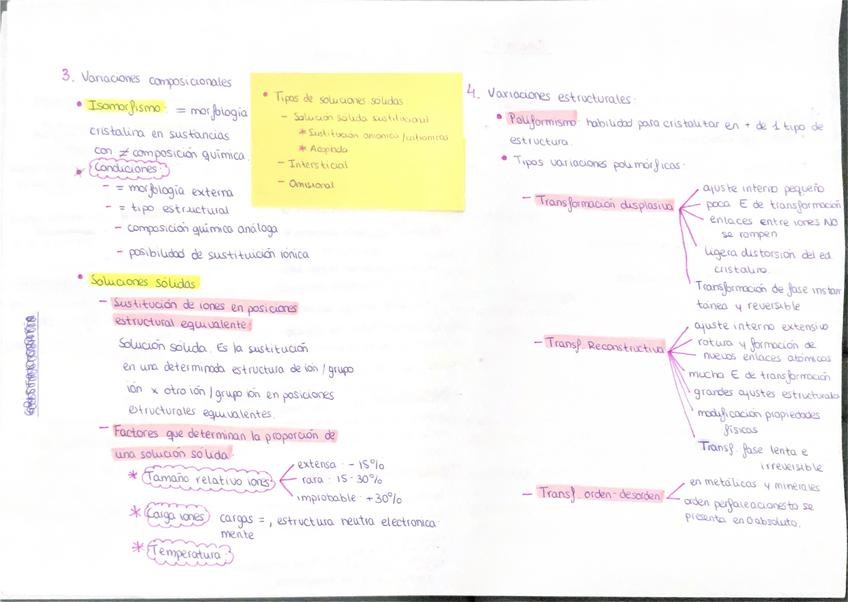 3. Variaciones composicionales
• Isomorfismo: = morfología
cristalina en sustancias
con ≠ composición química.
* Condiciones:
- = morfología externa
- = tipo estructural
- composición química análoga
- posibilidad de sustitución iónica
• Soluciones sólidas
- Sustitución de iones en posiciones
estructural equivalente:
Solución sólida. Es la sustitución
en una determinada estructura de ión/grupo
ión x otro ión/grupo ión en posiciones
estructurales equivalentes.
- Factores que determinan la proporción de
una solución sólida
* Tamaño relativo iones
extensa: -15%
rara: 15-30%
improbable: +30%
* Carga iones cargas =, estructura neutra electronica
mente
* Temperatura:
• Tipos de soluciones sólidas
- Solución sólida sustitucional
* Sustitución anionica/cationica
* Acoplada
- Intersticial
- Omisional
4. Variaciones estructurales:
• Poliformismo: habilidad para cristalizar en + de 1 tipo de
estructura.
• Tipos variaciones polimórficas:
- Transformación displasiva
ajuste interno pequeño
poca E de transformación
enlaces entre iones NO
se rompen
ligera distorsion del ed.
cristalino.
Transformación de fase instan
tánea y reversible
- Transf. Reconstructiva
ajuste interno extensivo
rotura y formación de
nuevos enlaces atómicos
mucha E de transformación
grandes ajustes estructurals
modificación propiedades
físicas
Transf. fase lenta e
irreversible
- Transf. orden-desorden
en metálicas y minerales
orden perfecto se
presenta en 0 absoluto.
CRISTALOGRAFÍA